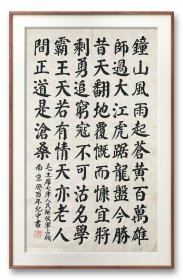 鐘山風雨起蒼黄百萬雄
師過大江虎踞龍盤今勝
昔天翻地覆慨而慷宜將
剩勇追窮寇不可沽名學
霸王天若有情天亦老人
間正道是滄桑
毛主席七律人民解放軍占領
南京癸酉年紀中書